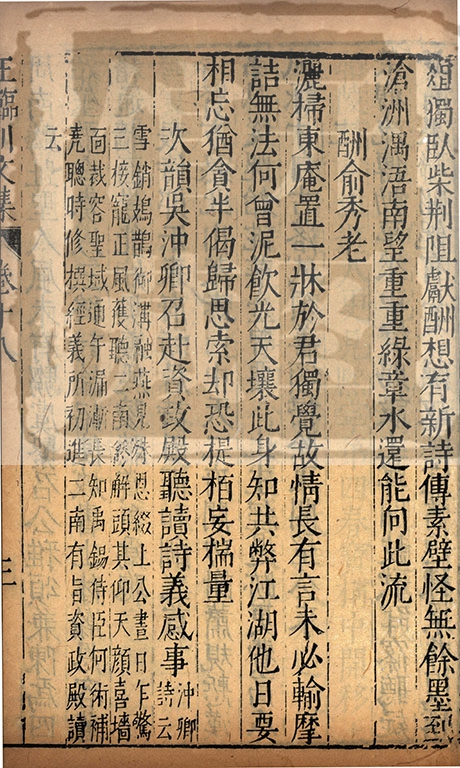 煙獨臥柴荆阻獻酬想有新詩傳素壁怪無餘墨到
滄洲湡浯南望重重綠章水還能向此流
酬俞秀老
灑掃東庵置一牀於君獨覺故情長有言未必輸摩
詰無法何曾泥飲光天壤此身知共弊江湖他日要
相忘猶貪半偈歸思索却恐提栢妄揣量
次韻吳沖卿召赴資政殿聽讀詩義感事沖卿詩云
雪銷鳷鵲御溝融燕見殊恩綴上公晝日乍驚
三接寵正風獲聽二南終解頤共仰天顔喜墻
面裁容聖域通午漏漸長知禹錫侍臣何術補
堯聰時修撰經義所初進二南有旨資政殿讀
云
王臨川文集
卷十八
三